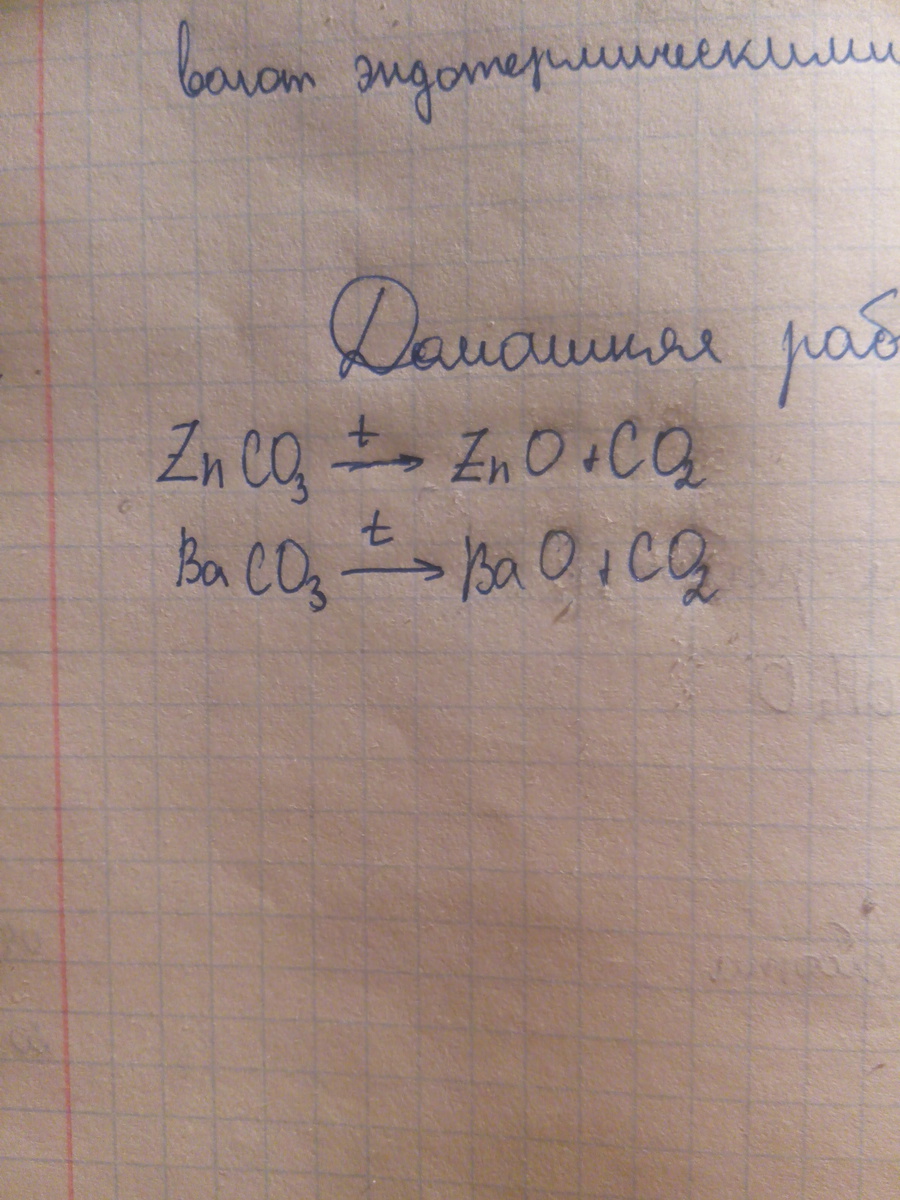 вают эндотермическими
Домашняя раб
ZnCO₃ →t ZnO + CO₂
BaCO₃ →t BaO + CO₂